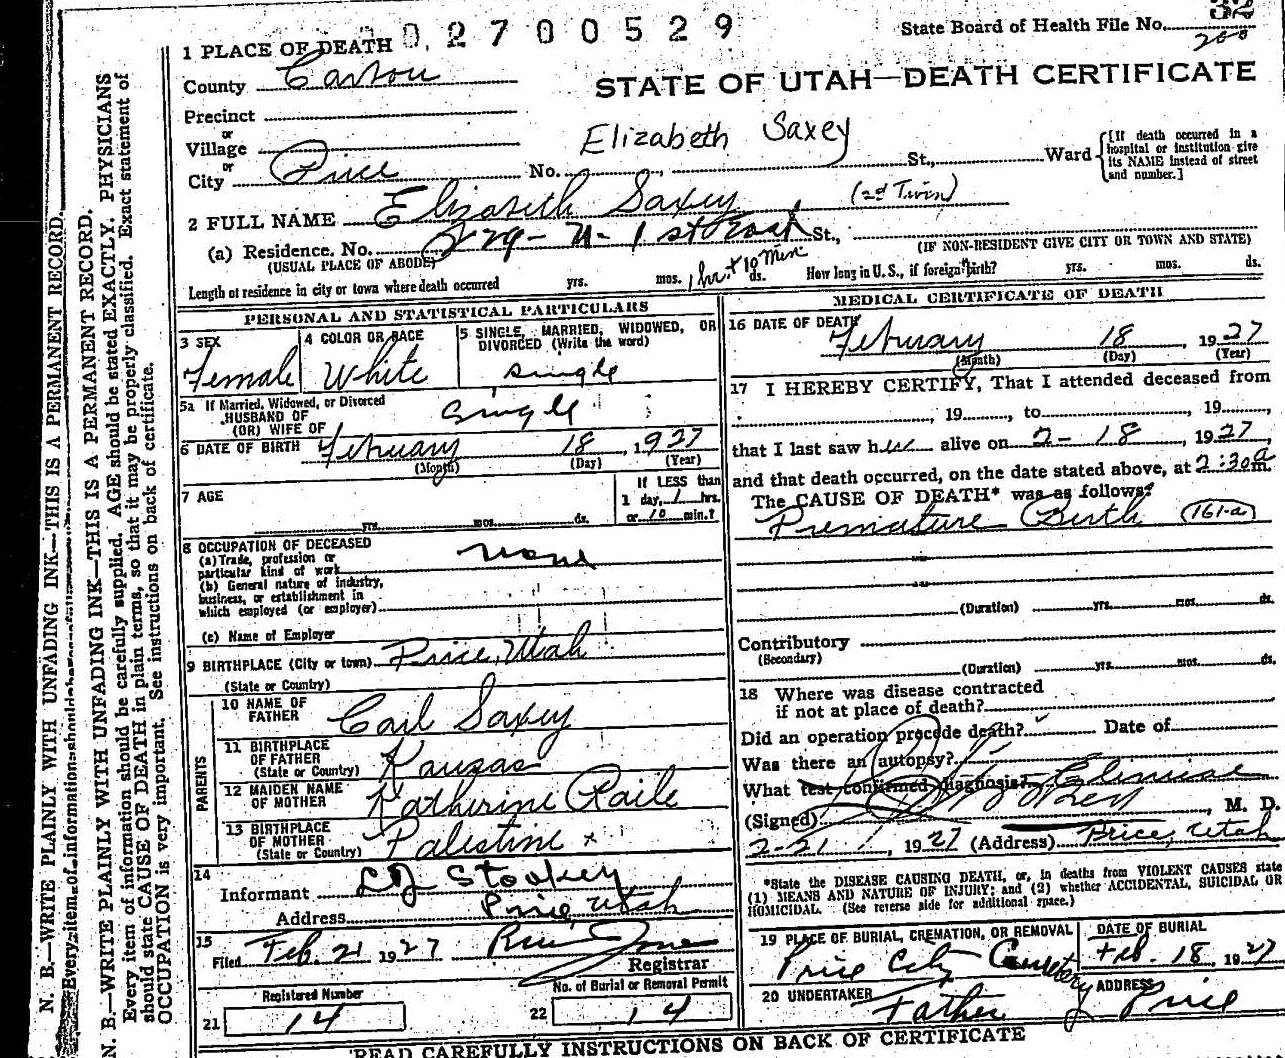 N. B.—WRITE PLAINLY WITH UNFADING INK—THIS IS A PERMANENT RECORD.
Every item of information should
N. B.—WRITE PLAINLY WITH UNFADING INK—THIS IS A PERMANENT RECORD.
Every item of information should be carefully supplied. AGE should be stated EXACTLY. PHYSICIANS
should state CAUSE OF DEATH in plain terms, so that it may be properly classified. Exact statement of
OCCUPATION is very important. See instructions on back of certificate.
02700529
State Board of Health File No. 32
200
1 PLACE OF DEATH
County Carbon
STATE OF UTAH—DEATH CERTIFICATE
Precinct
or
Village
Elizabeth Saxey
or
City Price No. St., Ward
[If death occurred in a
hospital or institution give
its NAME instead of street
and number.]
2 FULL NAME Elizabeth Saxey (2d Twin)
(a) Residence. No. 229-N-1st East St.,
(USUAL PLACE OF ABODE)
(IF NON-RESIDENT GIVE CITY OR TOWN AND STATE)
Length of residence in city or town where death occurred yrs. mos. 1 hr + 10 min ds. How long in U.S., if foreign birth? yrs. mos. ds.
PERSONAL AND STATISTICAL PARTICULARS
3 SEX
Female
4 COLOR OR RACE
White
5 SINGLE, MARRIED, WIDOWED, OR
DIVORCED (Write the word)
single
5a If Married, Widowed, or Divorced
HUSBAND OF
(OR) WIFE OF
single
6 DATE OF BIRTH February 18, 1927
(Month) (Day) (Year)
7 AGE
yrs. mos. ds.
If LESS than
1 day, 1 hrs.
or 10 min.?
8 OCCUPATION OF DECEASED
(a) Trade, profession or
particular kind of work none
(b) General nature of industry,
business, or establishment in
which employed (or employer)
(c) Name of Employer
9 BIRTHPLACE (City or town) Price, Utah
(State or Country)
PARENTS
10 NAME OF
FATHER Carl Saxey
11 BIRTHPLACE
OF FATHER
(State or Country) Kansas
12 MAIDEN NAME
OF MOTHER Katherine Raile
13 BIRTHPLACE
OF MOTHER
(State or Country) Palestine x
14
Informant Stookey
Address Price, Utah
15
Filed Feb. 21 1927
Registrar
Registered Number
21 14
No. of Burial or Removal Permit
22 14
MEDICAL CERTIFICATE OF DEATH
16 DATE OF DEATH
February 18, 1927
(Month) (Day) (Year)
17 I HEREBY CERTIFY, That I attended deceased from
, 19 , to , 19 ,
that I last saw her alive on 2-18, 1927,
and that death occurred, on the date stated above, at 2:30a m.
The CAUSE OF DEATH* was as follows:
Premature Birth (161-a)
(Duration) yrs. mos. ds.
Contributory
(Secondary)
(Duration) yrs. mos. ds.
18 Where was disease contracted
if not at place of death?
Did an operation precede death? Date of
Was there an autopsy?
What test confirmed diagnosis? Clinical
(Signed) , M. D.
2-21, 1927 (Address) Price, Utah
*State the DISEASE CAUSING DEATH, or, in deaths from VIOLENT CAUSES state
(1) MEANS AND NATURE OF INJURY; and (2) whether ACCIDENTAL, SUICIDAL OR
HOMICIDAL. (See reverse side for additional space.)
19 PLACE OF BURIAL, CREMATION, OR REMOVAL
Price City Cemetery
DATE OF BURIAL
Feb. 18, 1927
20 UNDERTAKER
Father
ADDRESS
Price
READ CAREFULLY INSTRUCTIONS ON BACK OF CERTIFICATE